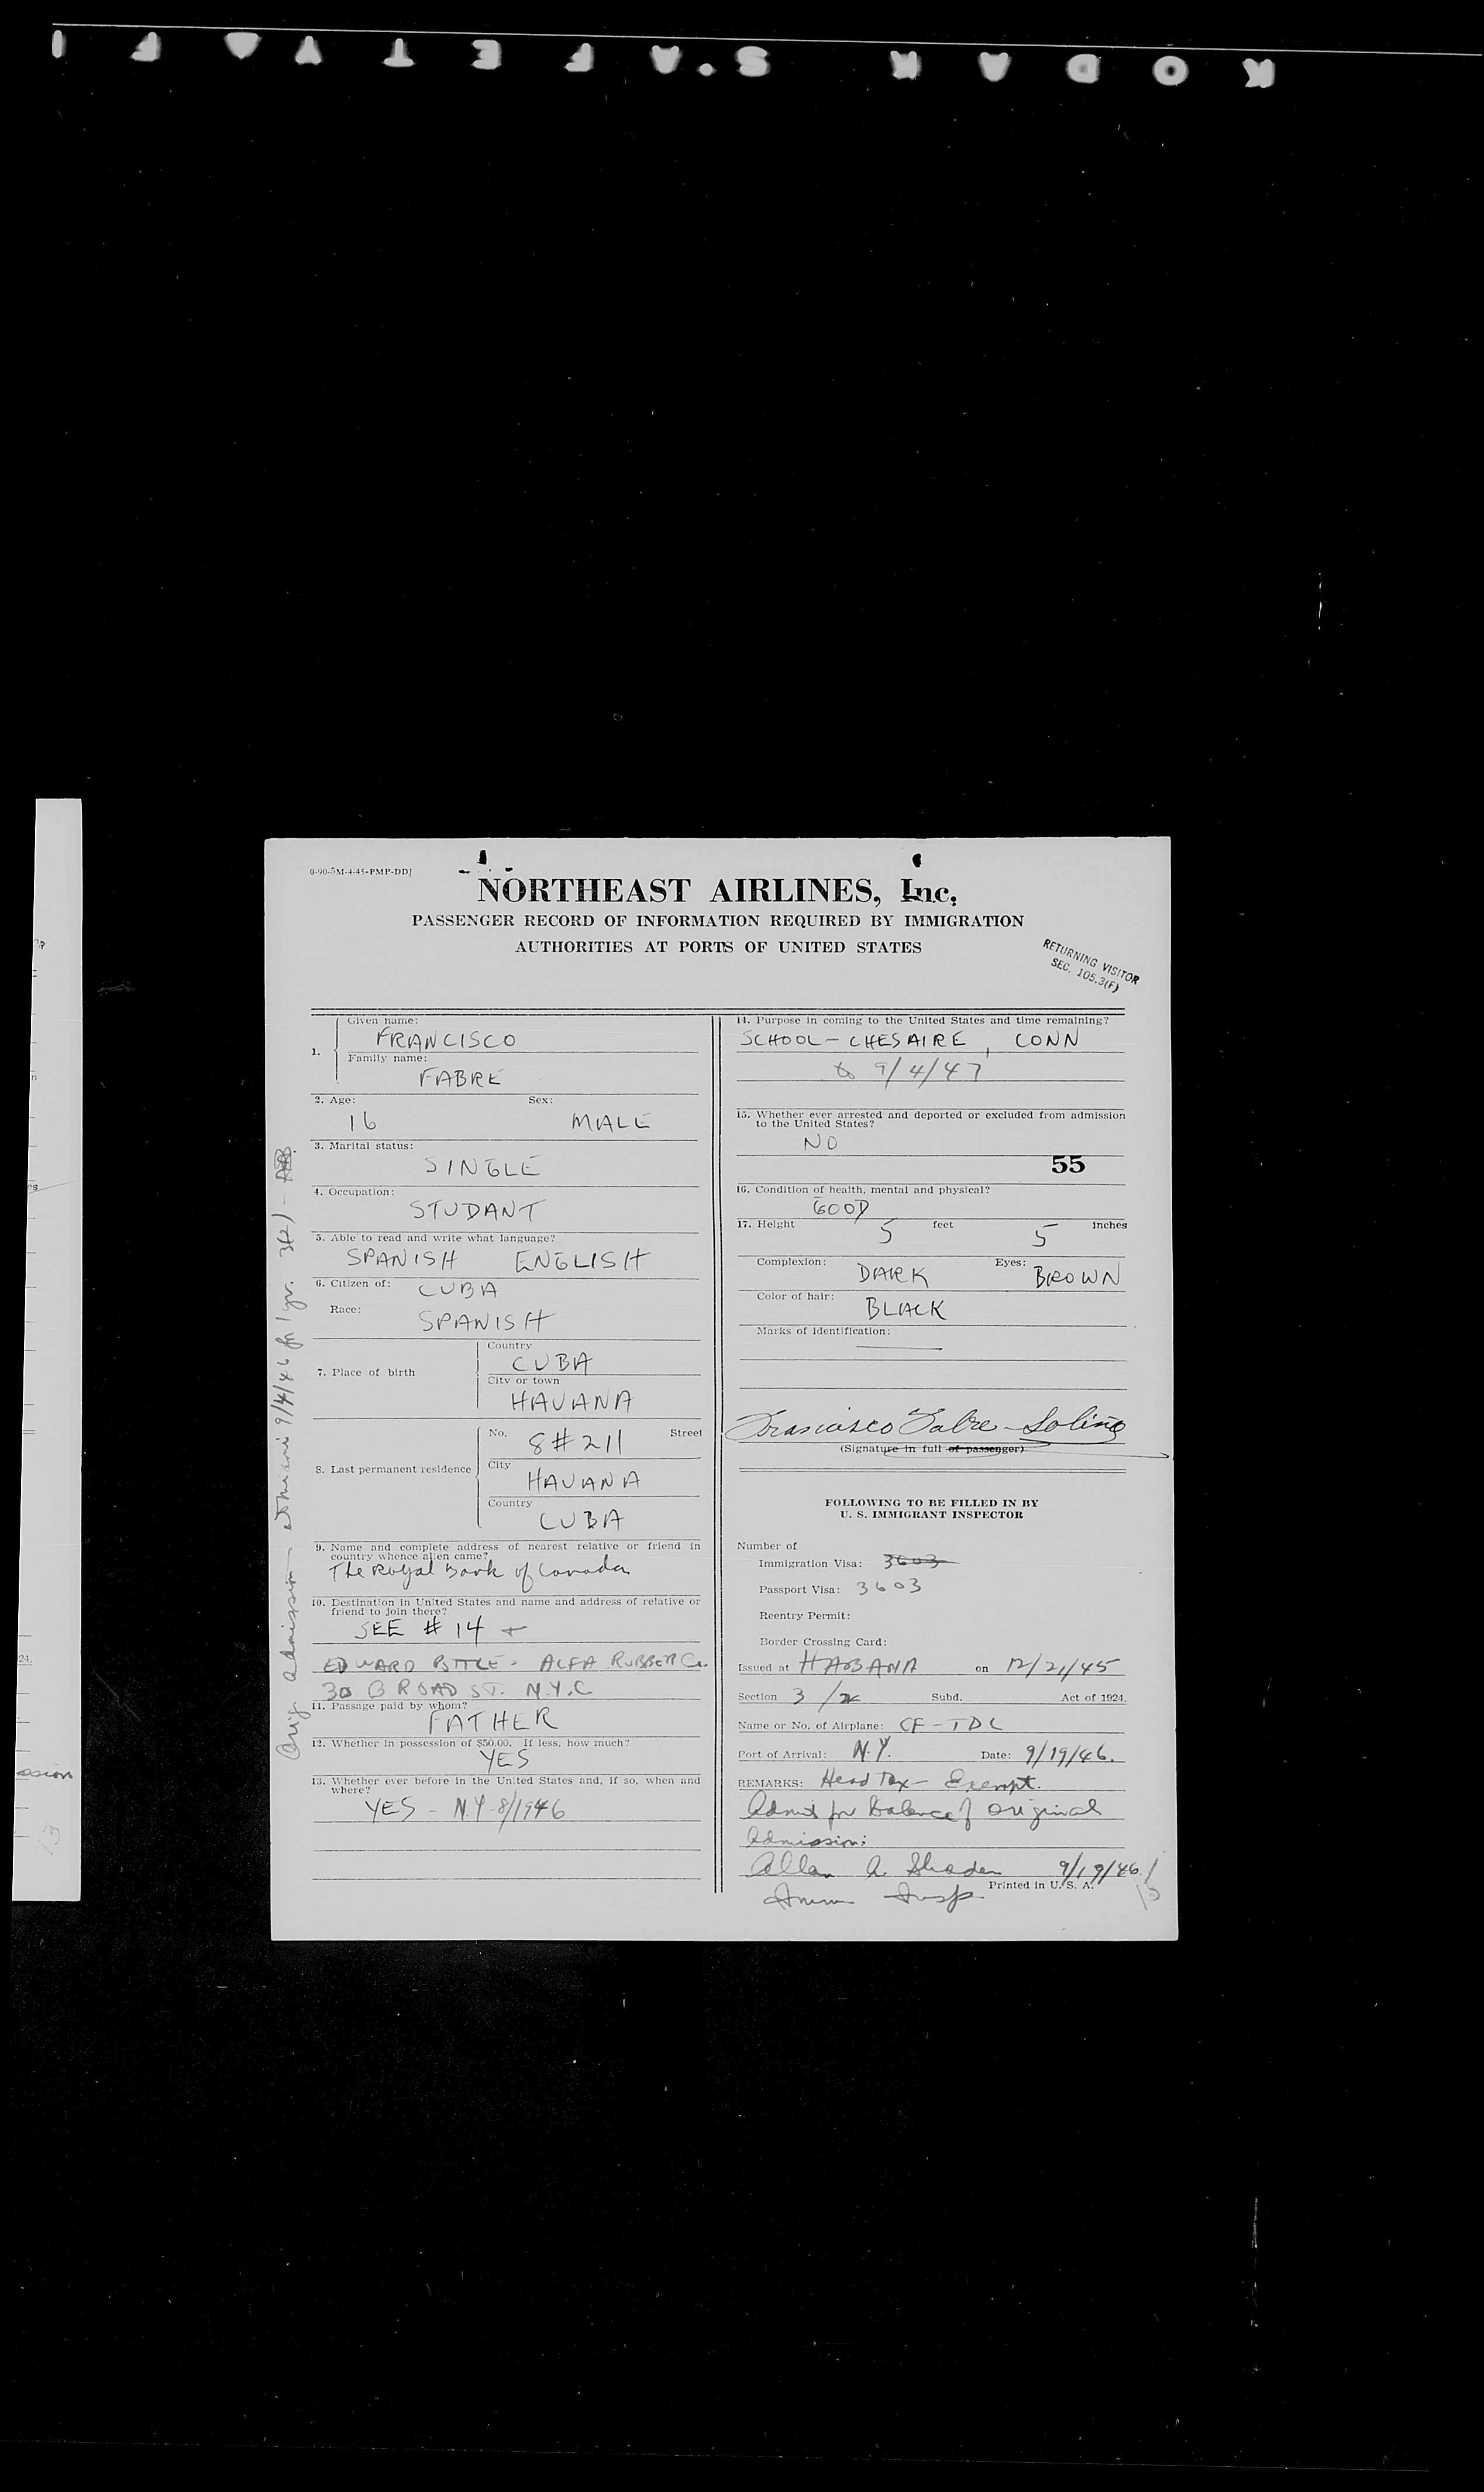 KODAK S.AFETY FI
0-90-5M-4-45-PMP-DDJ
NORTHEAST AIRLINES, Inc.
PASSENGER RECORD OF INFORMATION REQUIRED BY IMMIGRATION
AUTHORITIES AT PORTS OF UNITED STATES
RETURNING VISITOR
SEC. 105.3(F)
1. Given name:
FRANCISCO
Family name:
FABRE
2. Age: Sex:
16 MALE
3. Marital status:
SINGLE
4. Occupation:
STUDANT
5. Able to read and write what language?
SPANISH ENGLISH
6. Citizen of: CUBA
Race: SPANISH
7. Place of birth
Country
CUBA
City or town
HAVANA
8. Last permanent residence
No. 8#211 Street
City
HAVANA
Country
CUBA
9. Name and complete address of nearest relative or friend in
country whence alien came?
The Royal Bank of Canada
10. Destination in United States and name and address of relative or
friend to join there?
SEE # 14 +
EDWARD ALFA RUBBER Co.
30 BROAD ST. N.Y.C
11. Passage paid by whom?
FATHER
12. Whether in possession of $50.00. If less, how much?
YES
13. Whether ever before in the United States and, if so, when and
where?
YES - N.Y-8/1946
Orig admission at Miami 9/4/46 for 1 yr. 3(2) -
14. Purpose in coming to the United States and time remaining?
SCHOOL - CHESAIRE, CONN
to 9/4/47
15. Whether ever arrested and deported or excluded from admission
to the United States?
NO
55
16. Condition of health, mental and physical?
GOOD
17. Height 5 feet 5 inches
Complexion: DARK Eyes: BROWN
Color of hair: BLACK
Marks of identification:
Francisco Fabre - Soliño
(Signature in full of passenger)
FOLLOWING TO BE FILLED IN BY
U. S. IMMIGRANT INSPECTOR
Number of
Immigration Visa: 3603
Passport Visa: 3603
Reentry Permit:
Border Crossing Card:
Issued at HABANA on 12/21/45
Section 3/2 Subd. Act of 1924.
Name or No. of Airplane: CF-TDL
Port of Arrival: N.Y. Date: 9/19/46.
REMARKS: Head Tax - Exempt.
Admit for balance of original
Admission:
Allan A. 9/19/46
Printed in U. S. A.
Imm Insp